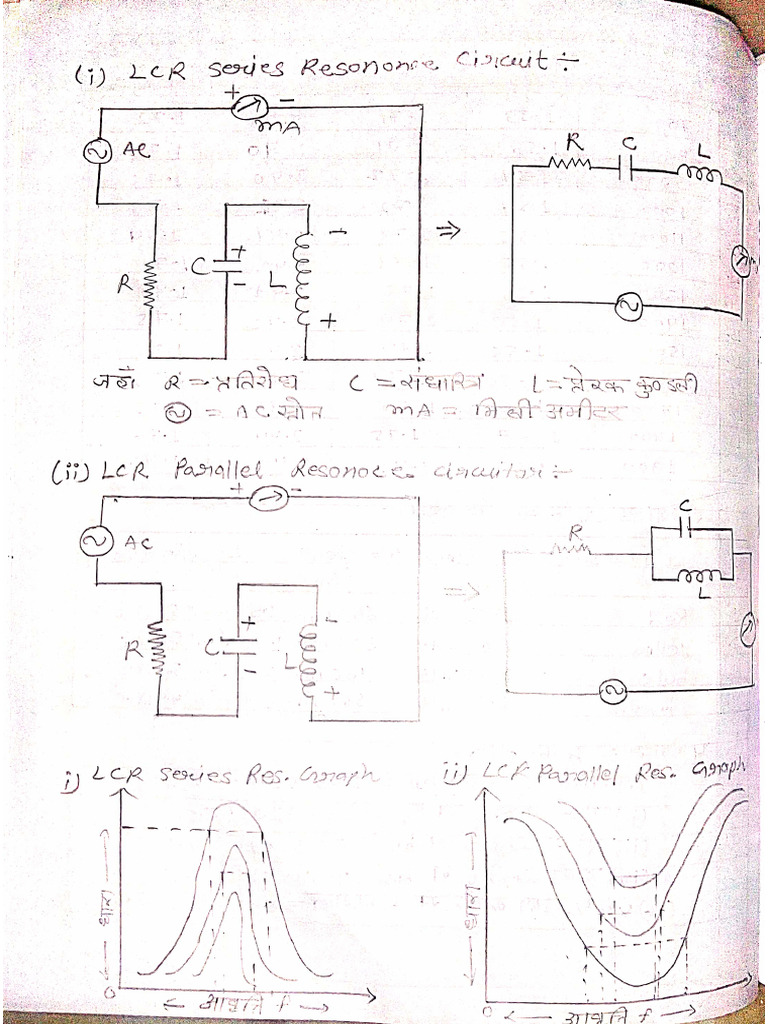 (i) LCR series Resononce Circuit :-
+ -
mA
AC
R C L
R
C
+
-
L
-
+
⇒
जहाँ R = प्रतिरोध C = संधारित्र L = प्रेरक कुण्डली
= AC स्रोत mA = मिली अमीटर
(ii) LCR Parallel Resonoce circuitor :-
+ -
AC
C
R
L
R
C
+
-
L
-
+
⇒
i) LCR series Res. Graph
ii) LCR Parallel Res. Graph
← धारा →
← धारा →
0
← आवृत्ति f →
0
← आवृत्ति f →